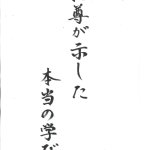 尊が示した
本当の学び